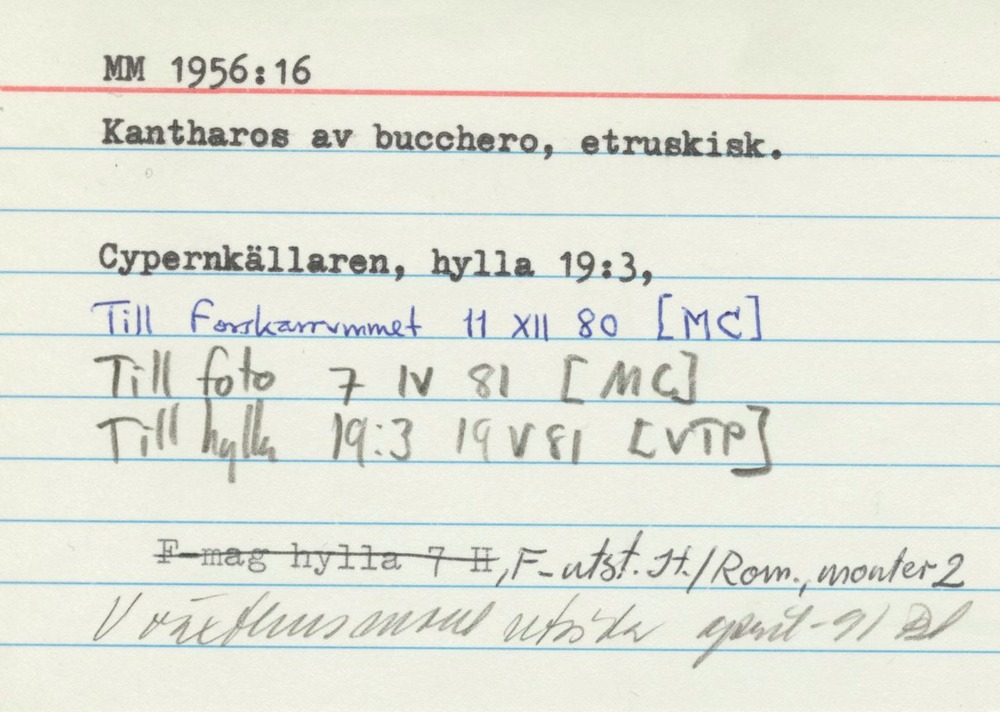 MM 1956:16
Kantharos av bucchero, etruskisk.
Cypernkällaren, hylla 19:3,
Till Forskarrummet 11 XII 80 [MC]
Till foto 7 IV 81 [MC]
Till hylla 19:3 19 V 81 [VTP]
F-mag hylla 7 H, F-utst. It./Rom., monter 2
april -91